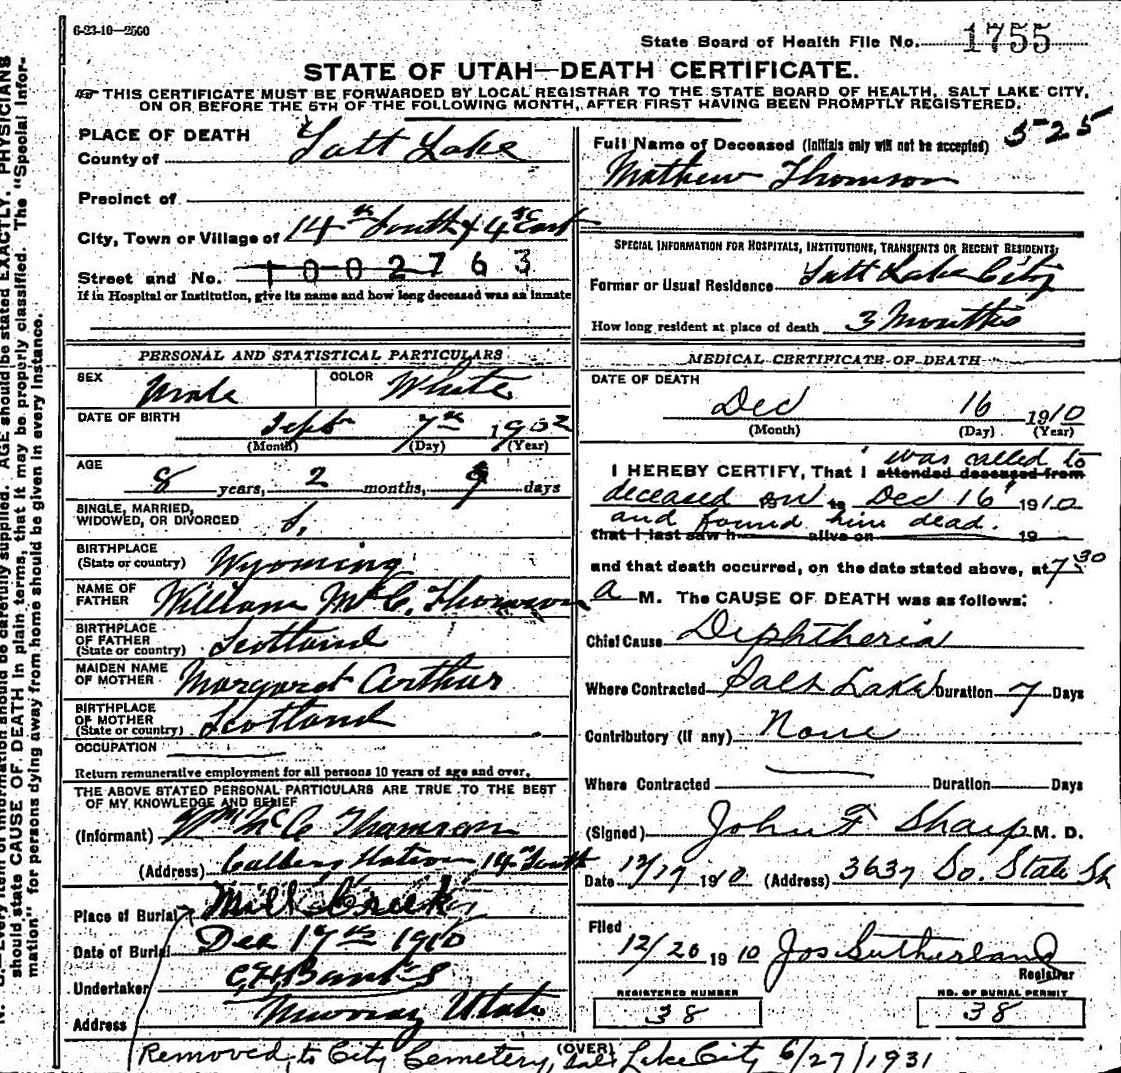 6-23-10—2500
State Board of Health File No. 1755
STATE OF UTAH—DEATH CERTIFICATE.
THIS CERTIFICATE MUST BE FORWARDED BY LOCAL REGISTRAR TO THE STATE BOARD OF HEALTH, SALT LAKE CITY,
ON OR BEFORE THE 5TH OF THE FOLLOWING MONTH, AFTER FIRST HAVING BEEN PROMPTLY REGISTERED.
PLACE OF DEATH
County of Salt Lake
Precinct of
City, Town or Village of 14th South & 4th East
Street and No. 1002763
If in Hospital or Institution, give its name and how long deceased was an inmate
PERSONAL AND STATISTICAL PARTICULARS
SEX Male COLOR White
DATE OF BIRTH Sept 7th 1902
(Month) (Day) (Year)
AGE
8 years, 2 months, 9 days
SINGLE, MARRIED,
WIDOWED, OR DIVORCED S.
BIRTHPLACE
(State or country) Wyoming
NAME OF
FATHER William McC. Thomson
BIRTHPLACE
OF FATHER
(State or country) Scotland
MAIDEN NAME
OF MOTHER Margaret Arthur
BIRTHPLACE
OF MOTHER
(State or country) Scotland
OCCUPATION
Return remunerative employment for all persons 10 years of age and over.
THE ABOVE STATED PERSONAL PARTICULARS ARE TRUE TO THE BEST
OF MY KNOWLEDGE AND BELIEF
(Informant) Wm McC Thomson
(Address) Station 14th South
Place of Burial Mill Creek
Date of Burial Dec 17th 1910
Undertaker Banks
Address Murray Utah
525
Full Name of Deceased (Initials only will not be accepted)
Mathew Thomson
SPECIAL INFORMATION FOR HOSPITALS, INSTITUTIONS, TRANSIENTS OR RECENT RESIDENTS:
Former or Usual Residence Salt Lake City
How long resident at place of death 3 Months
MEDICAL CERTIFICATE OF DEATH
DATE OF DEATH
Dec 16 1910
(Month) (Day) (Year)
was called to
I HEREBY CERTIFY, That I attended deceased from
deceased on 19 to Dec 16 1910
and found him dead.
that I last saw h alive on 19
and that death occurred, on the date stated above, at 7 30
a M. The CAUSE OF DEATH was as follows:
Chief Cause Diphtheria
Where Contracted Salt Lake Duration 7 Days
Contributory (if any) None
Where Contracted Duration Days
(Signed) John F Sharp M. D.
Date 12/17 1910 (Address) 3637 So. State St
Filed
12/20 1910 Jos Sutherland
Registrar
REGISTERED NUMBER
38
NO. OF BURIAL PERMIT
38
(OVER)
Removed to City Cemetery, Salt Lake City 6/27/1931
N. B.—Every item of information should be carefully supplied. AGE should be stated EXACTLY. PHYSICIANS
should state CAUSE OF DEATH in plain terms, that it may be properly classified. The "Special Infor-
mation" for persons dying away from home should be given in every instance.